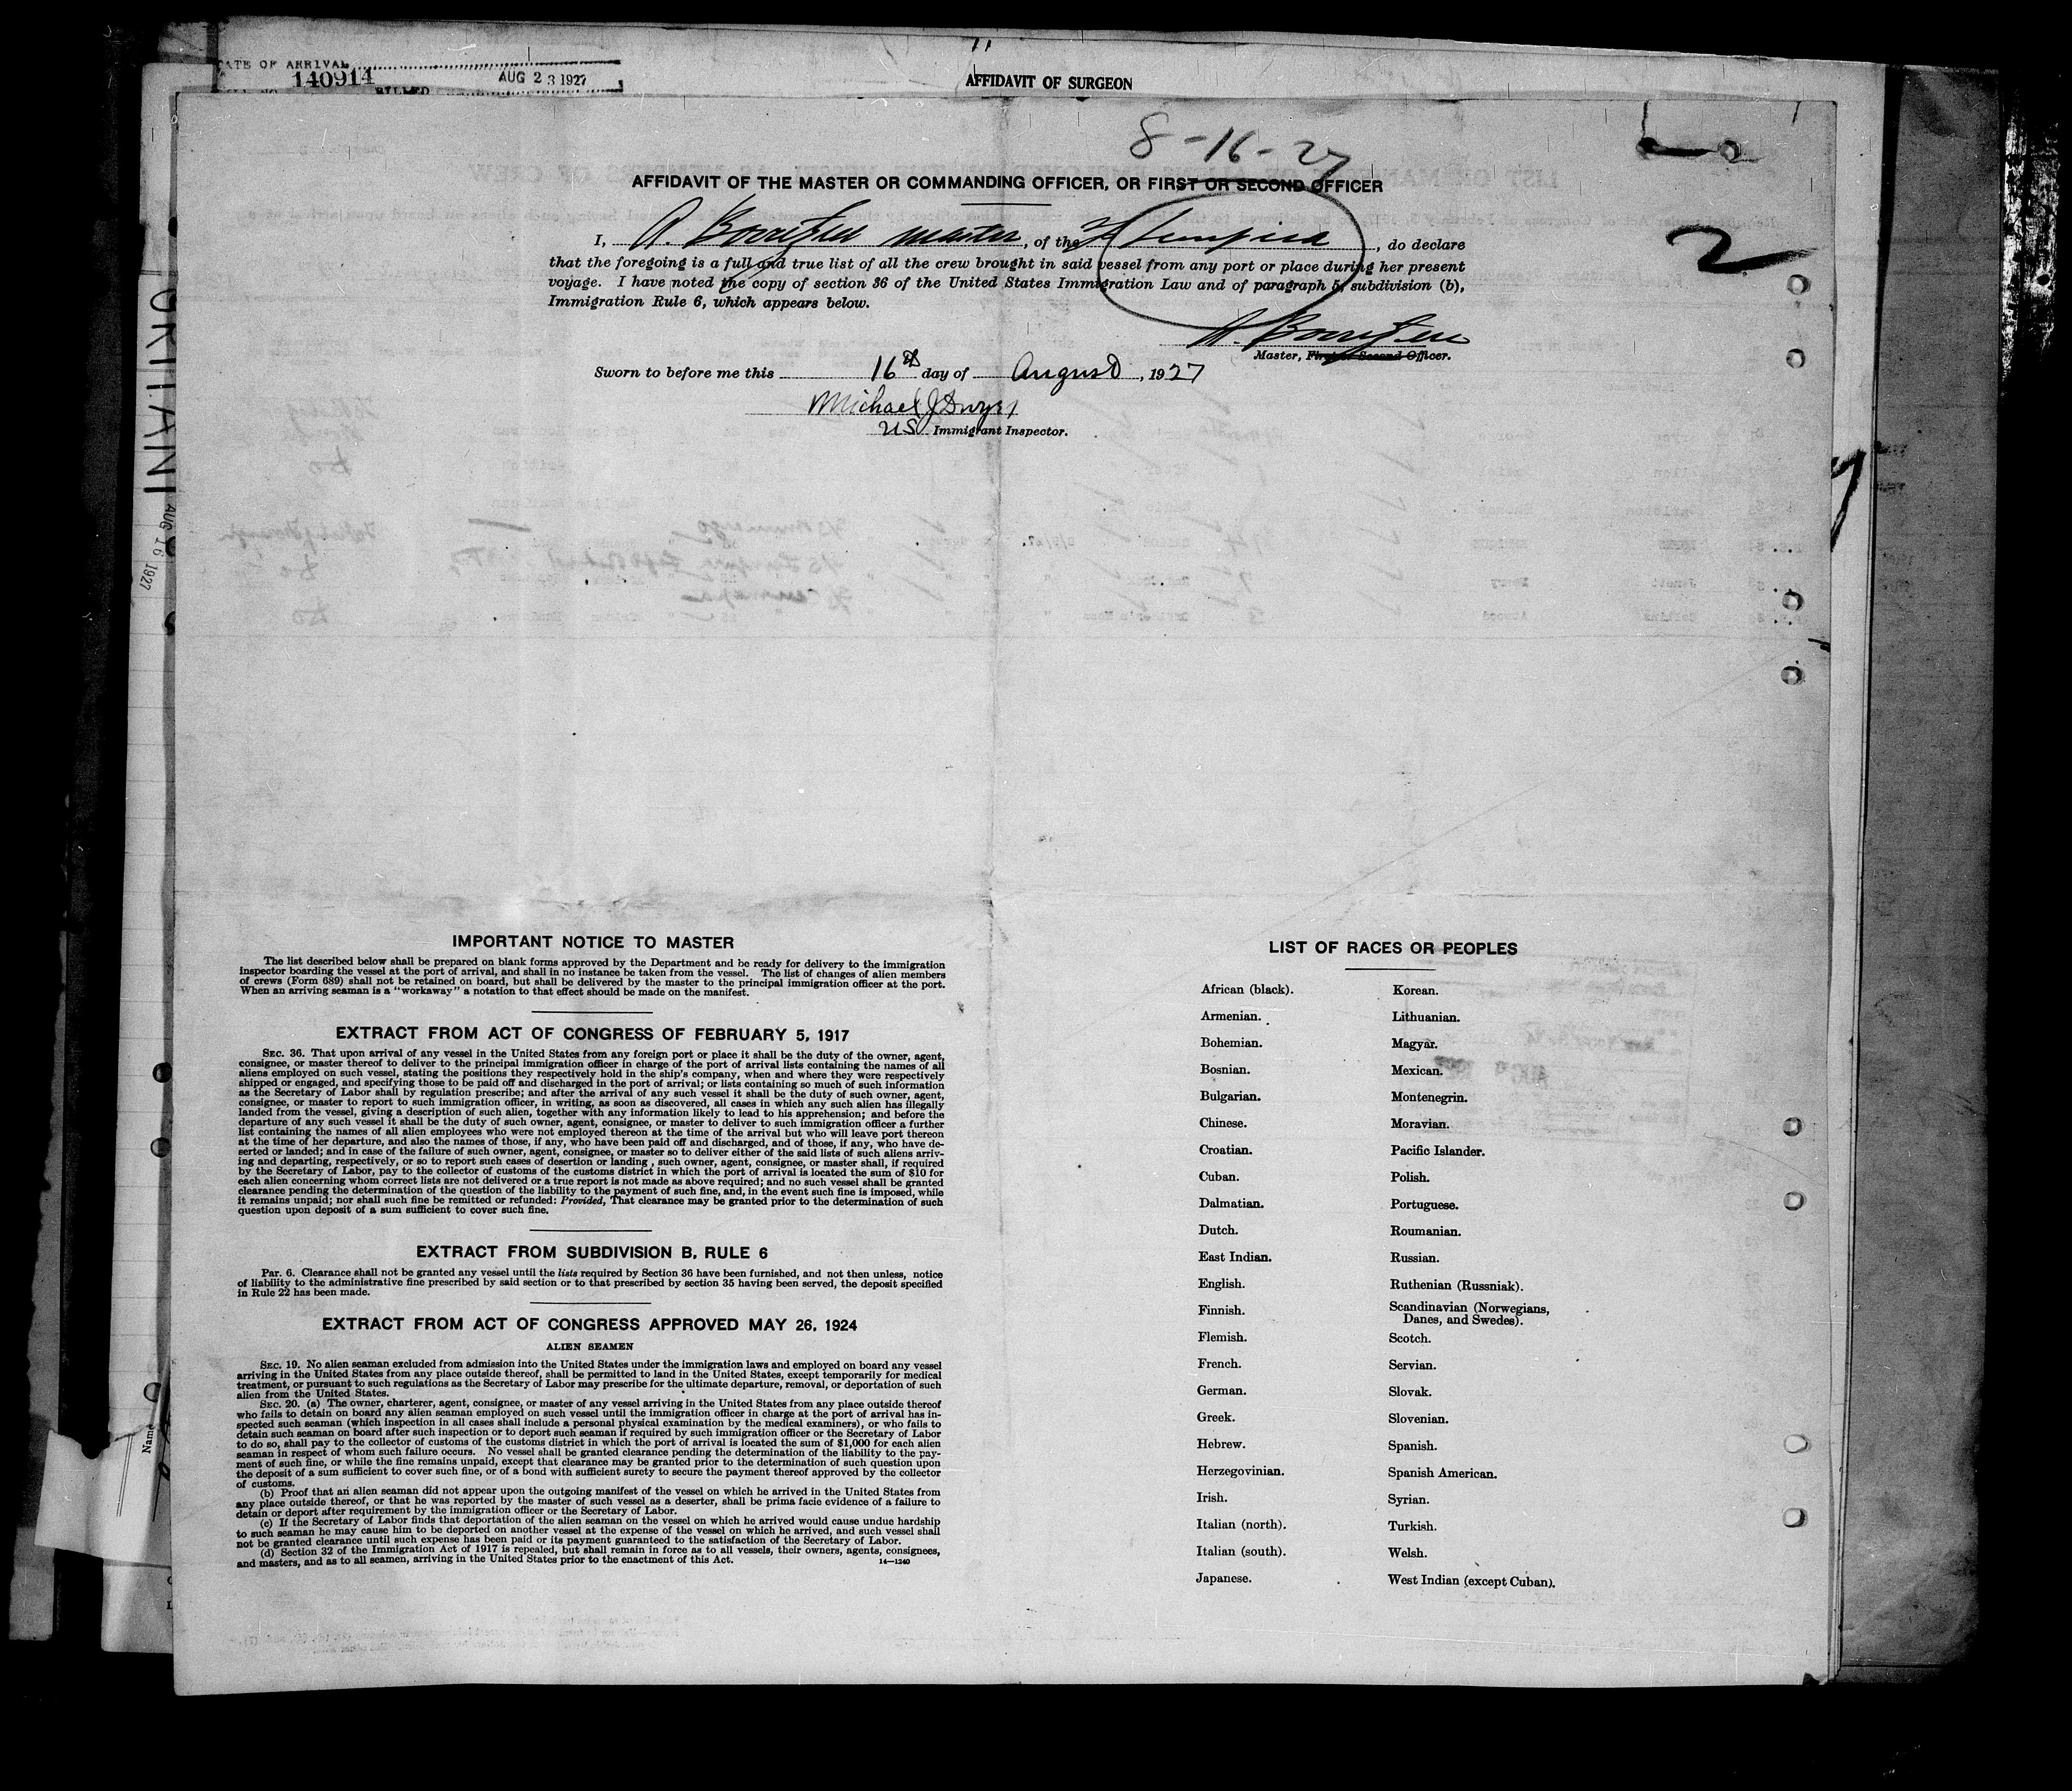 DATE OF ARRIVAL
140914
AUG 23 1927
BILLED
AFFIDAVIT OF SURGEON
8-16-27
AFFIDAVIT OF THE MASTER OR COMMANDING OFFICER, OR FIRST OR SECOND OFFICER
2
I, A. master, of the , do declare
that the foregoing is a full and true list of all the crew brought in said vessel from any port or place during her present
voyage. I have noted the copy of section 36 of the United States Immigration Law and of paragraph 5, subdivision (b),
Immigration Rule 6, which appears below.
Master, First or Second Officer.
Sworn to before me this 16th day of August, 1927
Michael J Dwyer
US Immigrant Inspector.
AUG 16 1927
IMPORTANT NOTICE TO MASTER
The list described below shall be prepared on blank forms approved by the Department and be ready for delivery to the immigration
inspector boarding the vessel at the port of arrival, and shall in no instance be taken from the vessel. The list of changes of alien members
of crews (Form 689) shall not be retained on board, but shall be delivered by the master to the principal immigration officer at the port.
When an arriving seaman is a "workaway" a notation to that effect should be made on the manifest.
EXTRACT FROM ACT OF CONGRESS OF FEBRUARY 5, 1917
SEC. 36. That upon arrival of any vessel in the United States from any foreign port or place it shall be the duty of the owner, agent,
consignee, or master thereof to deliver to the principal immigration officer in charge of the port of arrival lists containing the names of all
aliens employed on such vessel, stating the positions they respectively hold in the ship's company, when and where they were respectively
shipped or engaged, and specifying those to be paid off and discharged in the port of arrival; or lists containing so much of such information
as the Secretary of Labor shall by regulation prescribe; and after the arrival of any such vessel it shall be the duty of such owner, agent,
consignee, or master to report to such immigration officer, in writing, as soon as discovered, all cases in which any such alien has illegally
landed from the vessel, giving a description of such alien, together with any information likely to lead to his apprehension; and before the
departure of any such vessel it shall be the duty of such owner, agent, consignee, or master to deliver to such immigration officer a further
list containing the names of all alien employees who were not employed thereon at the time of the arrival but who will leave port thereon
at the time of her departure, and also the names of those, if any, who have been paid off and discharged, and of those, if any, who have de-
serted or landed; and in case of the failure of such owner, agent, consignee, or master so to deliver either of the said lists of such aliens arriv-
ing and departing, respectively, or so to report such cases of desertion or landing, such owner, agent, consignee, or master shall, if required
by the Secretary of Labor, pay to the collector of customs of the customs district in which the port of arrival is located the sum of $10 for
each alien concerning whom correct lists are not delivered or a true report is not made as above required; and no such vessel shall be granted
clearance pending the determination of the question of the liability to the payment of such fine, and, in the event such fine is imposed, while
it remains unpaid; nor shall such fine be remitted or refunded: Provided, That clearance may be granted prior to the determination of such
question upon deposit of a sum sufficient to cover such fine.
EXTRACT FROM SUBDIVISION B, RULE 6
Par. 6. Clearance shall not be granted any vessel until the lists required by Section 36 have been furnished, and not then unless, notice
of liability to the administrative fine prescribed by said section or to that prescribed by section 35 having been served, the deposit specified
in Rule 22 has been made.
EXTRACT FROM ACT OF CONGRESS APPROVED MAY 26, 1924
ALIEN SEAMEN
SEC. 19. No alien seaman excluded from admission into the United States under the immigration laws and employed on board any vessel
arriving in the United States from any place outside thereof, shall be permitted to land in the United States, except temporarily for medical
treatment, or pursuant to such regulations as the Secretary of Labor may prescribe for the ultimate departure, removal, or deportation of such
alien from the United States.
SEC. 20. (a) The owner, charterer, agent, consignee, or master of any vessel arriving in the United States from any place outside thereof
who fails to detain on board any alien seaman employed on such vessel until the immigration officer in charge at the port of arrival has in-
spected such seaman (which inspection in all cases shall include a personal physical examination by the medical examiners), or who fails to
detain such seaman on board after such inspection or to deport such seaman if required by such immigration officer or the Secretary of Labor
to do so, shall pay to the collector of customs of the customs district in which the port of arrival is located the sum of $1,000 for each alien
seaman in respect of whom such failure occurs. No vessel shall be granted clearance pending the determination of the liability to the pay-
ment of such fine, or while the fine remains unpaid, except that clearance may be granted prior to the determination of such question upon
the deposit of a sum sufficient to cover such fine, or of a bond with sufficient surety to secure the payment thereof approved by the collector
of customs.
(b) Proof that an alien seaman did not appear upon the outgoing manifest of the vessel on which he arrived in the United States from
any place outside thereof, or that he was reported by the master of such vessel as a deserter, shall be prima facie evidence of a failure to
detain or deport after requirement by the immigration officer or the Secretary of Labor.
(c) If the Secretary of Labor finds that deportation of the alien seaman on the vessel on which he arrived would cause undue hardship
to such seaman he may cause him to be deported on another vessel at the expense of the vessel on which he arrived, and such vessel shall
not be granted clearance until such expense has been paid or its payment guaranteed to the satisfaction of the Secretary of Labor.
(d) Section 32 of the Immigration Act of 1917 is repealed, but shall remain in force as to all vessels, their owners, agents, consignees,
and masters, and as to all seamen, arriving in the United States prior to the enactment of this Act.
14—1240
Name
LIST OF RACES OR PEOPLES
African (black).
Armenian.
Bohemian.
Bosnian.
Bulgarian.
Chinese.
Croatian.
Cuban.
Dalmatian.
Dutch.
East Indian.
English.
Finnish.
Flemish.
French.
German.
Greek.
Hebrew.
Herzegovinian.
Irish.
Italian (north).
Italian (south).
Japanese.
Korean.
Lithuanian.
Magyar.
Mexican.
Montenegrin.
Moravian.
Pacific Islander.
Polish.
Portuguese.
Roumanian.
Russian.
Ruthenian (Russniak).
Scandinavian (Norwegians,
Danes, and Swedes).
Scotch.
Servian.
Slovak.
Slovenian.
Spanish.
Spanish American.
Syrian.
Turkish.
Welsh.
West Indian (except Cuban).